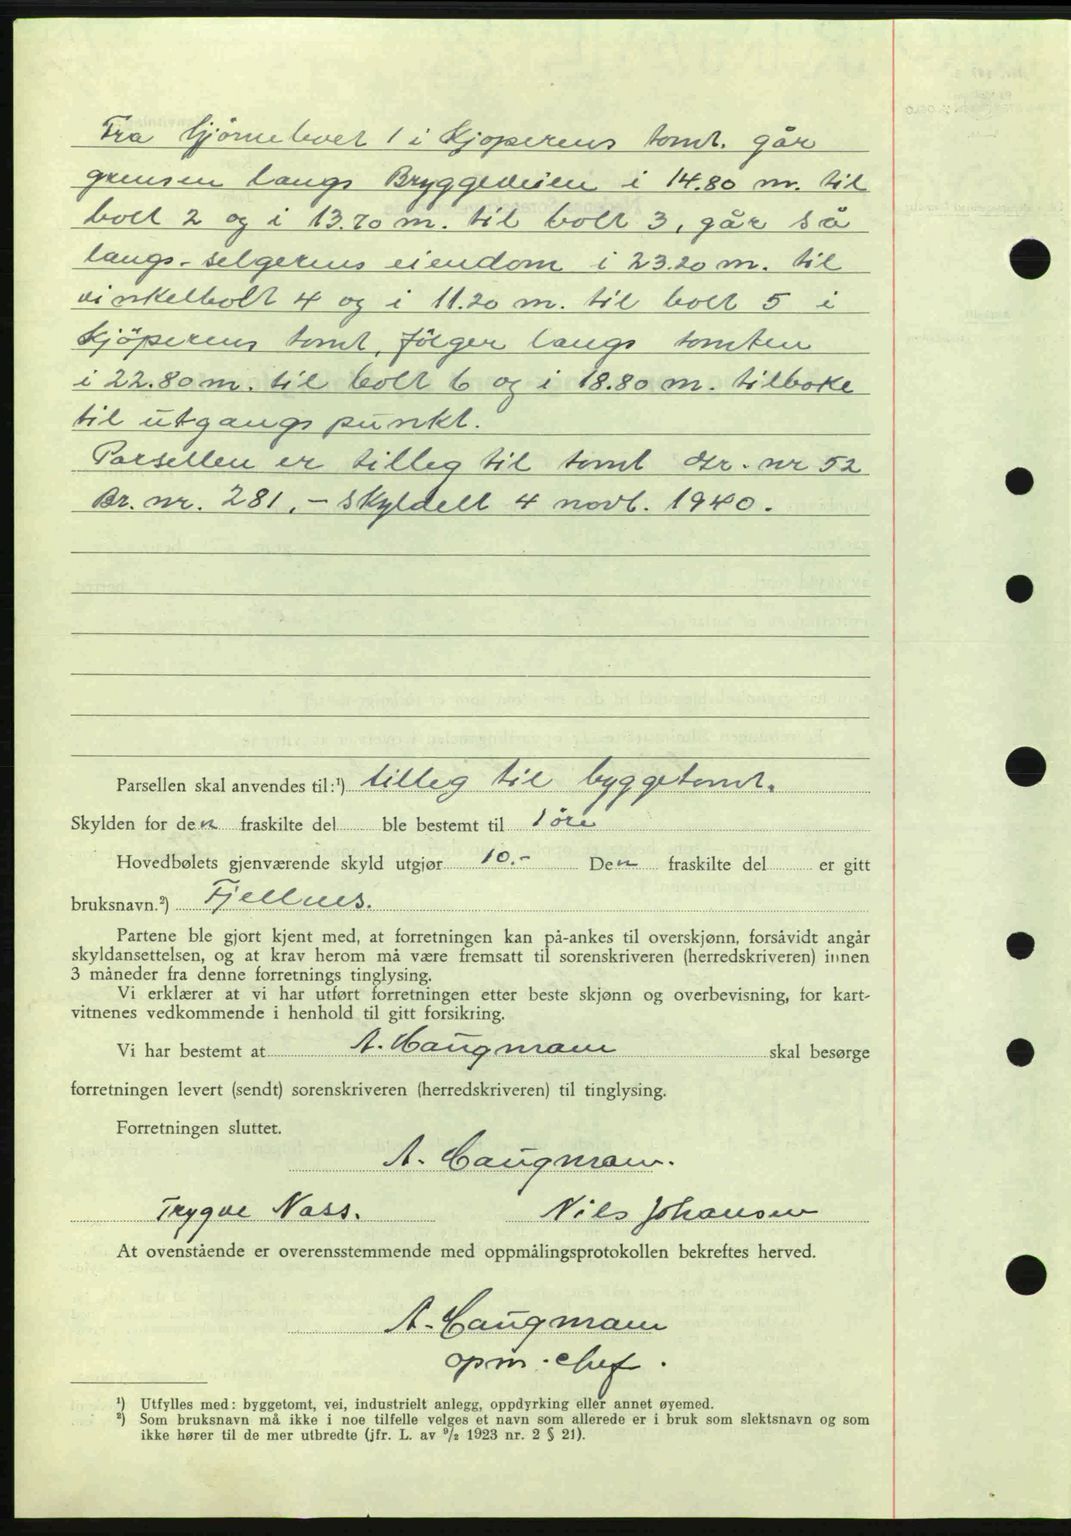 Fra hjörnebolt 1 i Kjoperens tomt. går
grensen langs Bryggeveien i 14.80 m. til
bolt 2 og i 13.70 m. til bolt 3, går så
langs selgerens eiendom i 23.20 m. til
vinkelbolt 4 og i 11.20 m. til bolt 5 i
Kjöperens tomt, følger langs tomten
i 22.80 m. til bolt 6 og i 18.80 m. tilbake
til utgangspunkt.
Parsellen er tilleg til tomt Gr. nr 52
Br. nr. 281. - Skyldelt 4 novb. 1940.
Parsellen skal anvendes til:¹) tilleg til byggetomt.
Skylden for den fraskilte del ble bestemt til 1 öre
Hovedbølets gjenværende skyld utgjør 10.- Den fraskilte del er gitt
bruksnavn.²) Fjellnes.
Partene ble gjort kjent med, at forretningen kan på-ankes til overskjønn, forsåvidt angår
skyldansettelsen, og at krav herom må være fremsatt til sorenskriveren (herredskriveren) innen
3 måneder fra denne forretnings tinglysing.
Vi erklærer at vi har utført forretningen etter beste skjønn og overbevisning, for kart-
vitnenes vedkommende i henhold til gitt forsikring.
Vi har bestemt at A. Haugmann skal besørge
forretningen levert (sendt) sorenskriveren (herredskriveren) til tinglysing.
Forretningen sluttet.
A. Haugmann.
Trygve Nass. Nils Johansen
At ovenstående er overensstemmende med oppmålingsprotokollen bekreftes herved.
A. Haugmann
opm. chef.
¹) Utfylles med: byggetomt, vei, industrielt anlegg, oppdyrking eller annet øyemed.
²) Som bruksnavn må ikke i noe tilfelle velges et navn som allerede er i bruk som slektsnavn og som
ikke hører til de mer utbredte (jfr. L. av 9/2 1923 nr. 2 § 21).